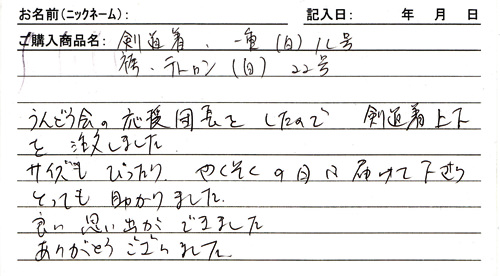 お名前(ニックネーム): 記入日: 年 月 日
ご購入商品名: 剣道着、一重(白)1.5号
袴、テトロン(白)22号
うんどう会の応援団長をしたので 剣道着上下
を注文しました
サイズもぴったり、やくそくの日に届けて下さり
とっても助かりました。
良い思い出ができました
ありがとうございました。